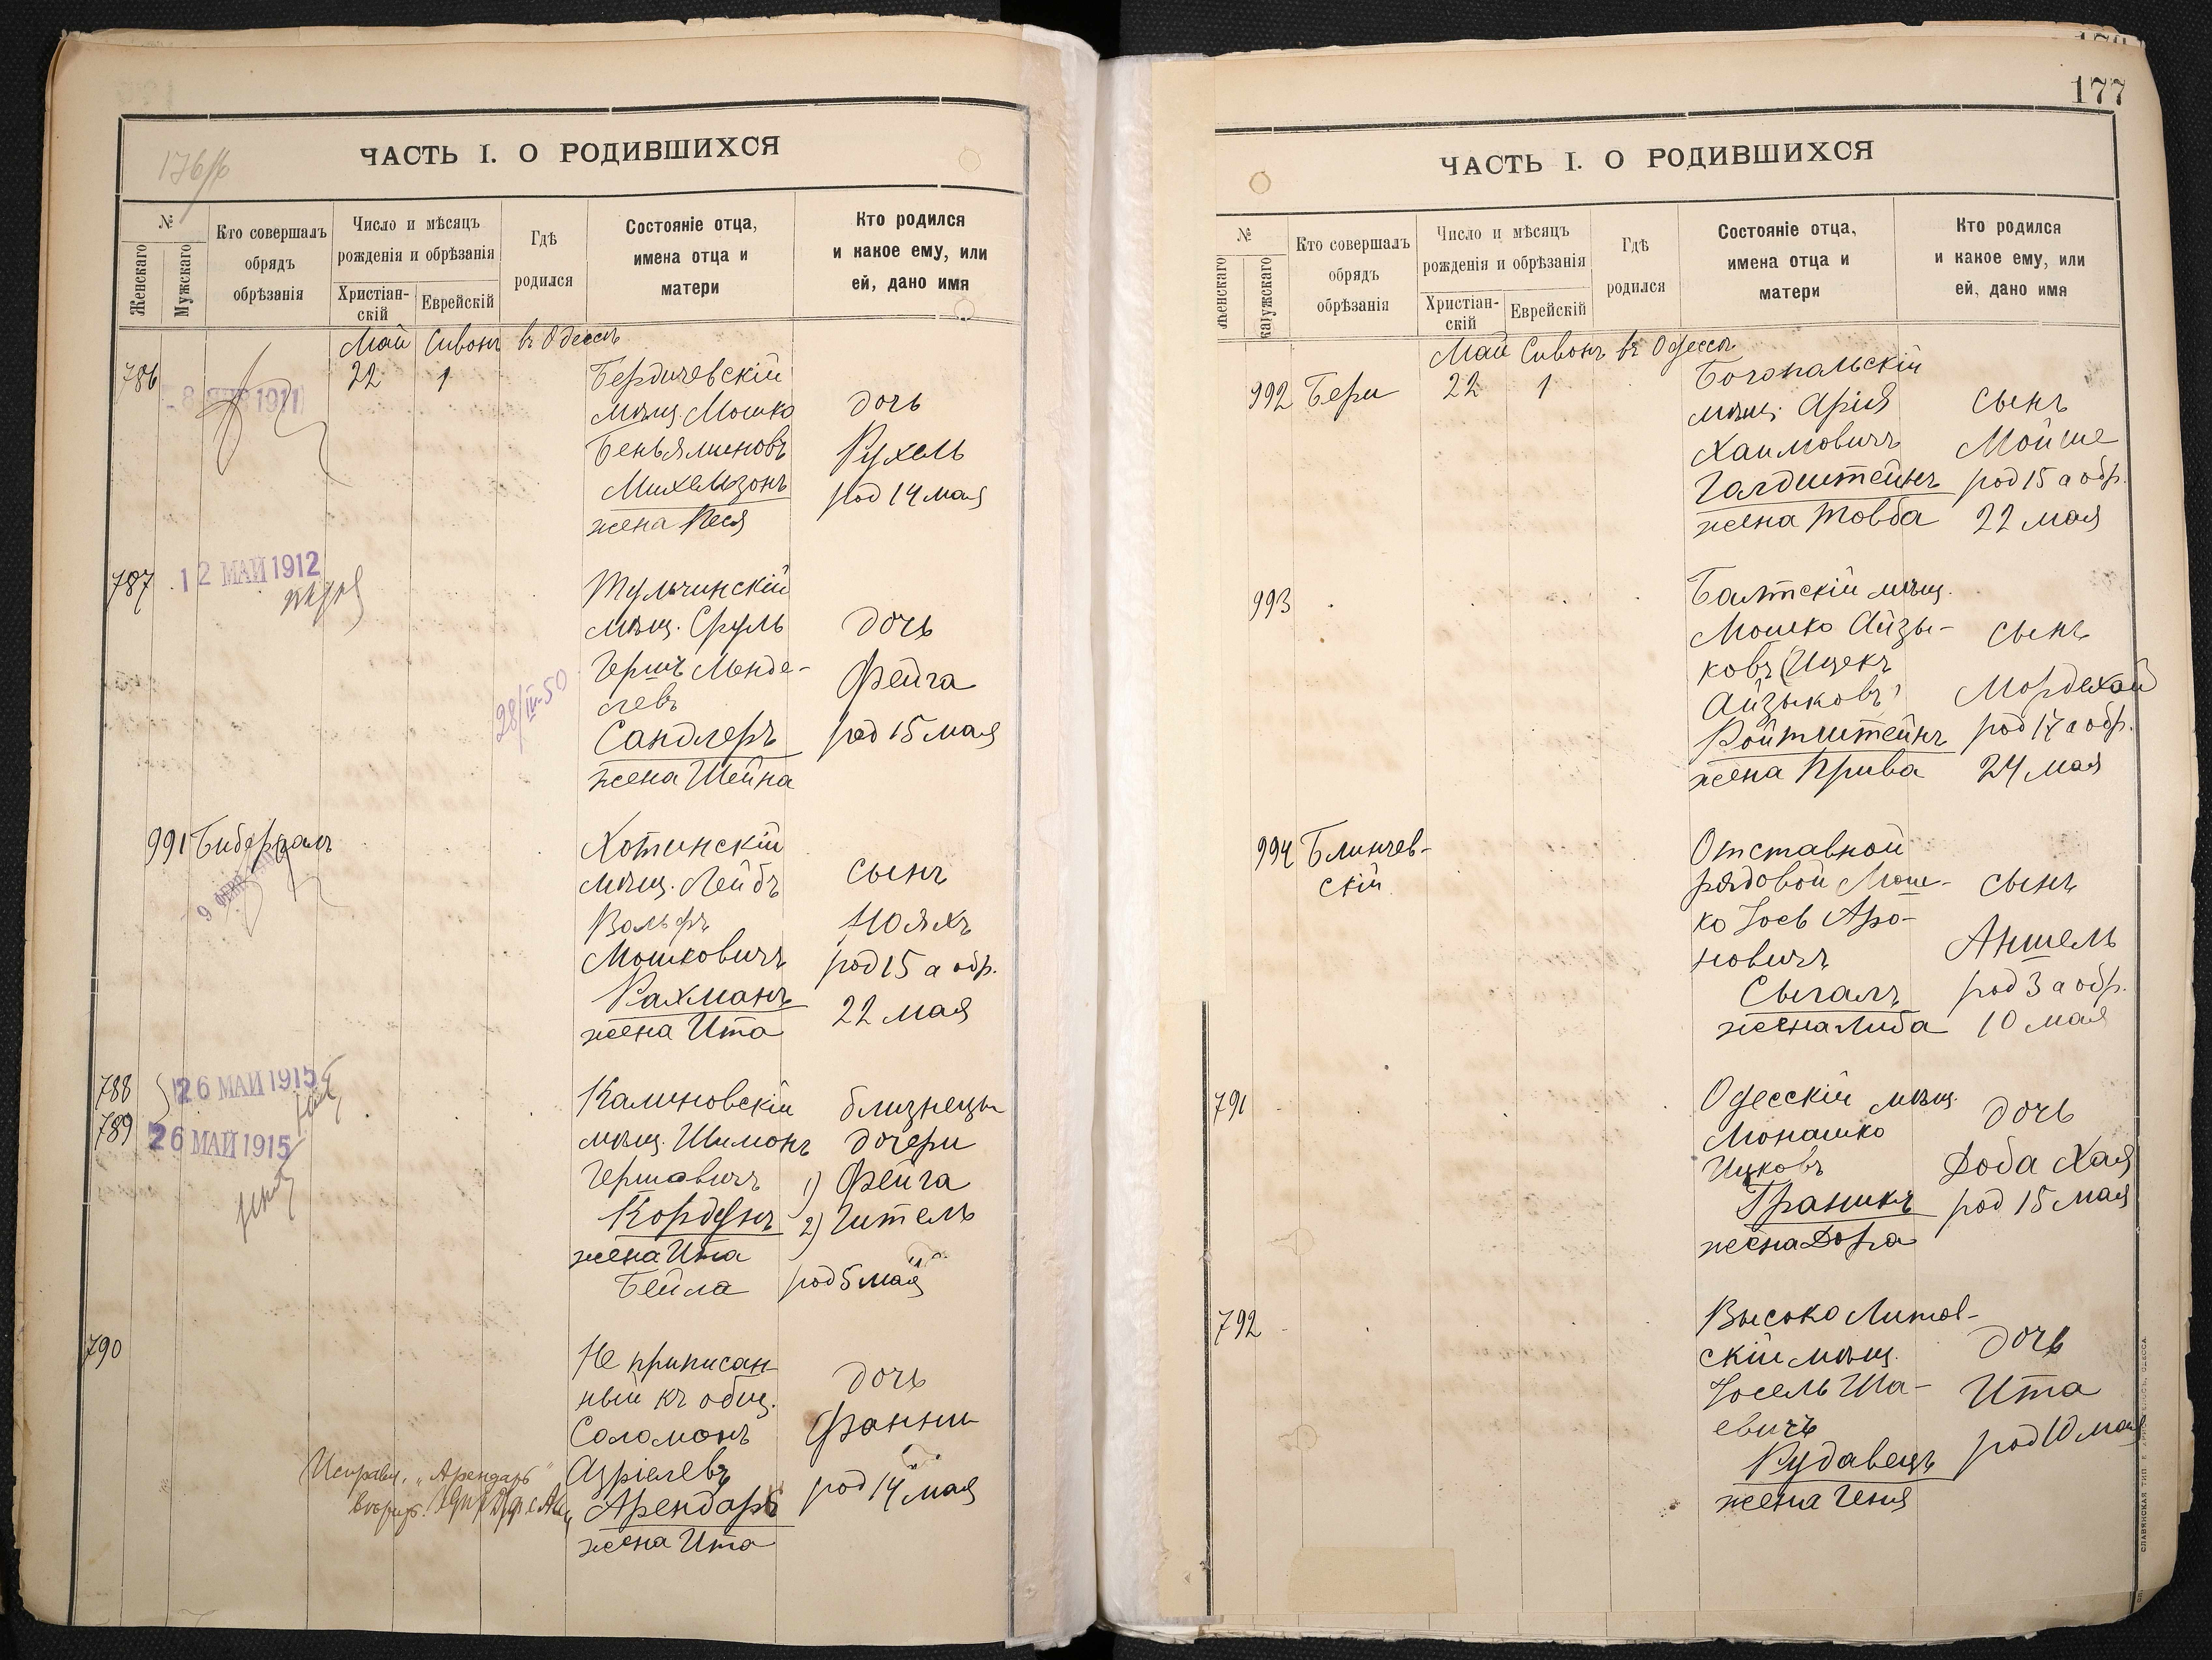 176/б
ЧАСТЬ I. О РОДИВШИХСЯ
№
Женскаго
Мужскаго
Кто совершалъ
обрядъ
обрѣзанія
Число и мѣсяцъ
рожденія и обрѣзанія
Христіан-
скій
Еврейскій
Гдѣ
родился
Состояніе отца,
имена отца и
матери
Кто родился
и какое ему, или
ей, дано имя
Май Сивонъ въ Одессѣ
786
8 ЯНВ 1911
22 1
Бердичевскій
мѣщ. Мошко
Беньяминовъ
Михельзонъ
жена Песя
дочь
Рухель
род 14 мая
787
12 МАЙ 1912
28/IV-50
Тульчинскій
мѣщ. Сруль
Гершъ Менде-
левъ
Сандлеръ
жена Шейна
дочь
Фейга
род 15 мая
991 Бибергалъ
Хотинскій
мѣщ. Лейбъ
Вольфъ
Мошковичъ
Рахманъ
жена Ита
сынъ
Нояхъ
род 15 а обр.
22 мая
788
789
26 МАЙ 1915
26 МАЙ 1915
Калиновскій
мѣщ. Шимонъ
Гершовичъ
Кордунъ
жена Ита
Бейла
близнецы
дочери
1) Фейга
2) Гитель
род 5 мая
790
Не приписан-
ный къ общ.
Соломонъ
Азріелевъ
Арендаръ
жена Ита
дочь
Фанни
род 14 мая
Исправл. „Арендаръ"
177
ЧАСТЬ I. О РОДИВШИХСЯ
№
Женскаго
Мужскаго
Кто совершалъ
обрядъ
обрѣзанія
Число и мѣсяцъ
рожденія и обрѣзанія
Христіан-
скій
Еврейскій
Гдѣ
родился
Состояніе отца,
имена отца и
матери
Кто родился
и какое ему, или
ей, дано имя
Май Сивонъ въ Одессѣ
992 Бери 22 1
Богопальскій
мѣщ. Арія
Хаимовичъ
Галдштейнъ
жена Товба
сынъ
Мойше
род 15 а обр.
22 мая
993
Балтскій мѣщ.
Мошко Айзы-
ковъ (Ицекъ
Айзыковъ)
Ройтштейнъ
жена Прива
сынъ
Мордехай
род 17 а обр.
24 мая
994 Блинчев-
скій
Отставной
рядовой Мош-
ко Іосъ Аро-
новичъ
Сыгалъ
жена Либа
сынъ
Аншель
род 3 а обр.
10 мая
791
Одесскій мѣщ.
Монашко
Ицковъ
Граникъ
жена Дора
дочь
Доба Хая
род 15 мая
792
Высоко Литов-
скій мѣщ.
Іосель Ша-
евичъ
Рудавецъ
жена Геня
дочь
Ита
род 10 мая